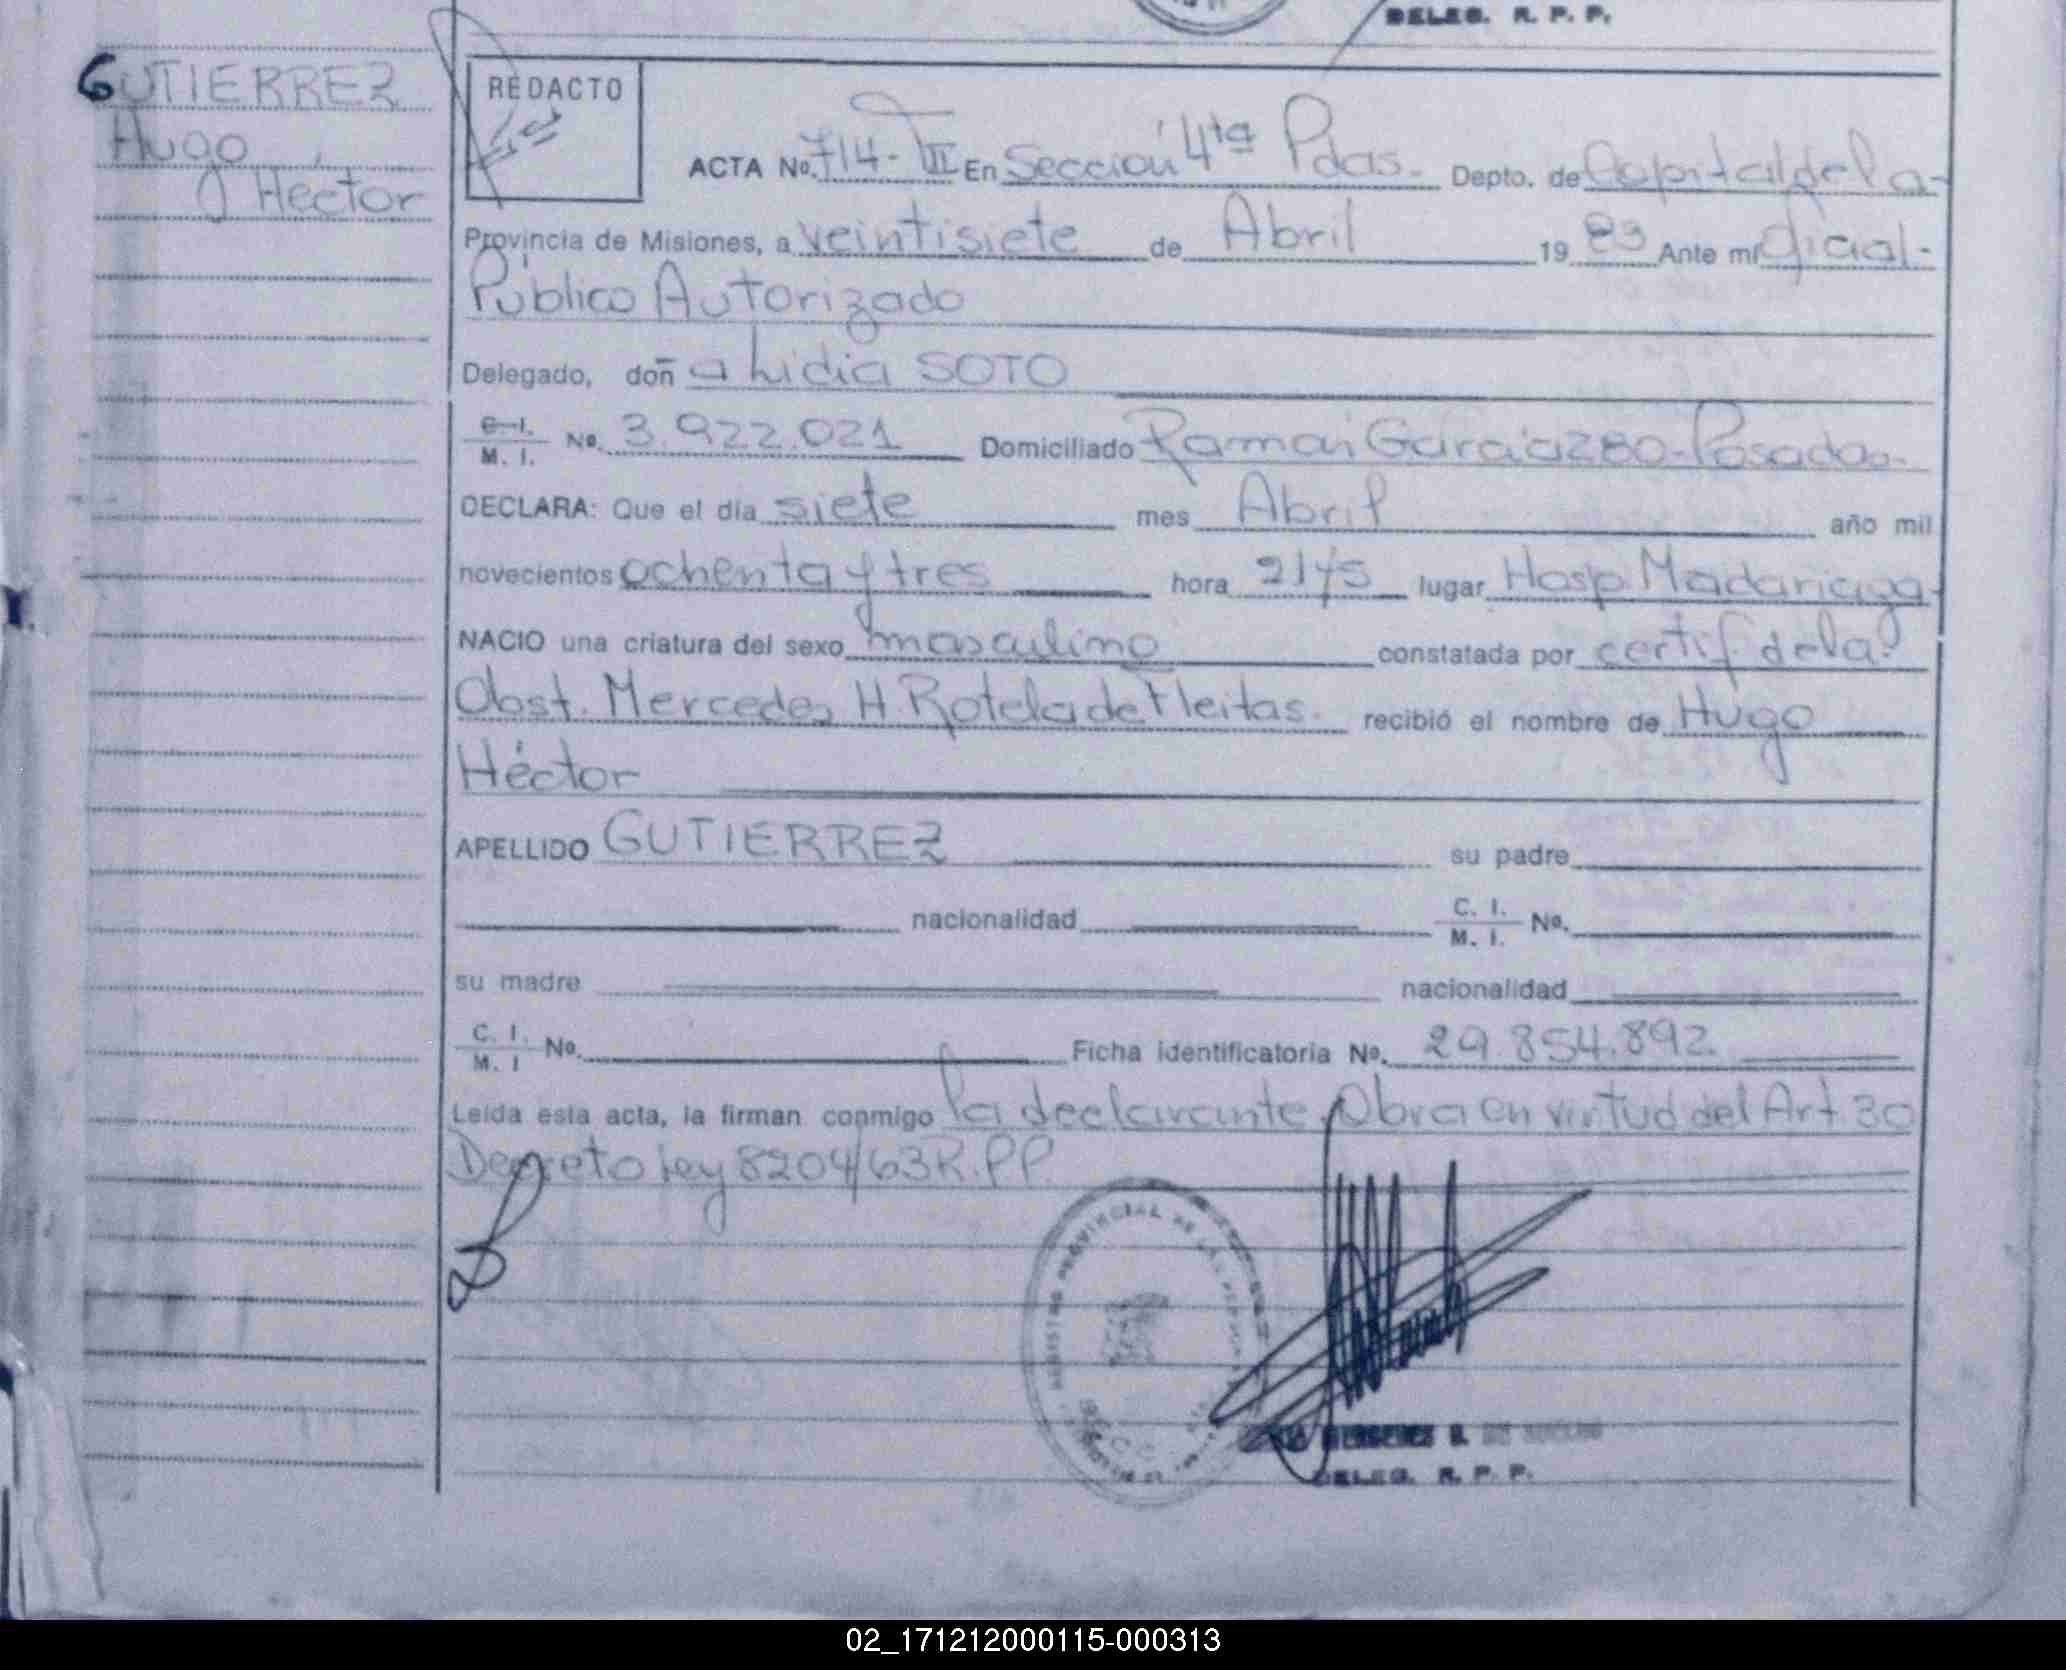 DELEG. R. P. P.
GUTIERREZ
Hugo
Héctor
REDACTO
ACTA No. 714- III En Sección 4ta Pdas. Depto. de Capital de la-
Provincia de Misiones, a veintisiete de Abril 19 83 Ante mí Oficial-
Público Autorizado
Delegado, doñ a Lidia SOTO
C. I. / M. I. No. 3.922.021 Domiciliado Ramón García 280-Posadas-
DECLARA: Que el día siete mes Abril año mil
novecientos ochenta y tres hora lugar Hosp. Madariaga-
NACIO una criatura del sexo masculino constatada por certif. de la
Obst. Mercedes H. Rotela de Fleitas. recibió el nombre de Hugo
Héctor
APELLIDO GUTIERREZ su padre
nacionalidad C. I. / M. I. No.
su madre nacionalidad
C. I. / M. I No. Ficha identificatoria No. 29.854.892
Leída esta acta, la firman conmigo la declarante, Obra en virtud del Art 30
Decreto Ley 8204/63 R.PP.
REGISTRO PROVINCIAL DE LAS PERSONAS
DELEG. R. P. P.
02_171212000115-000313